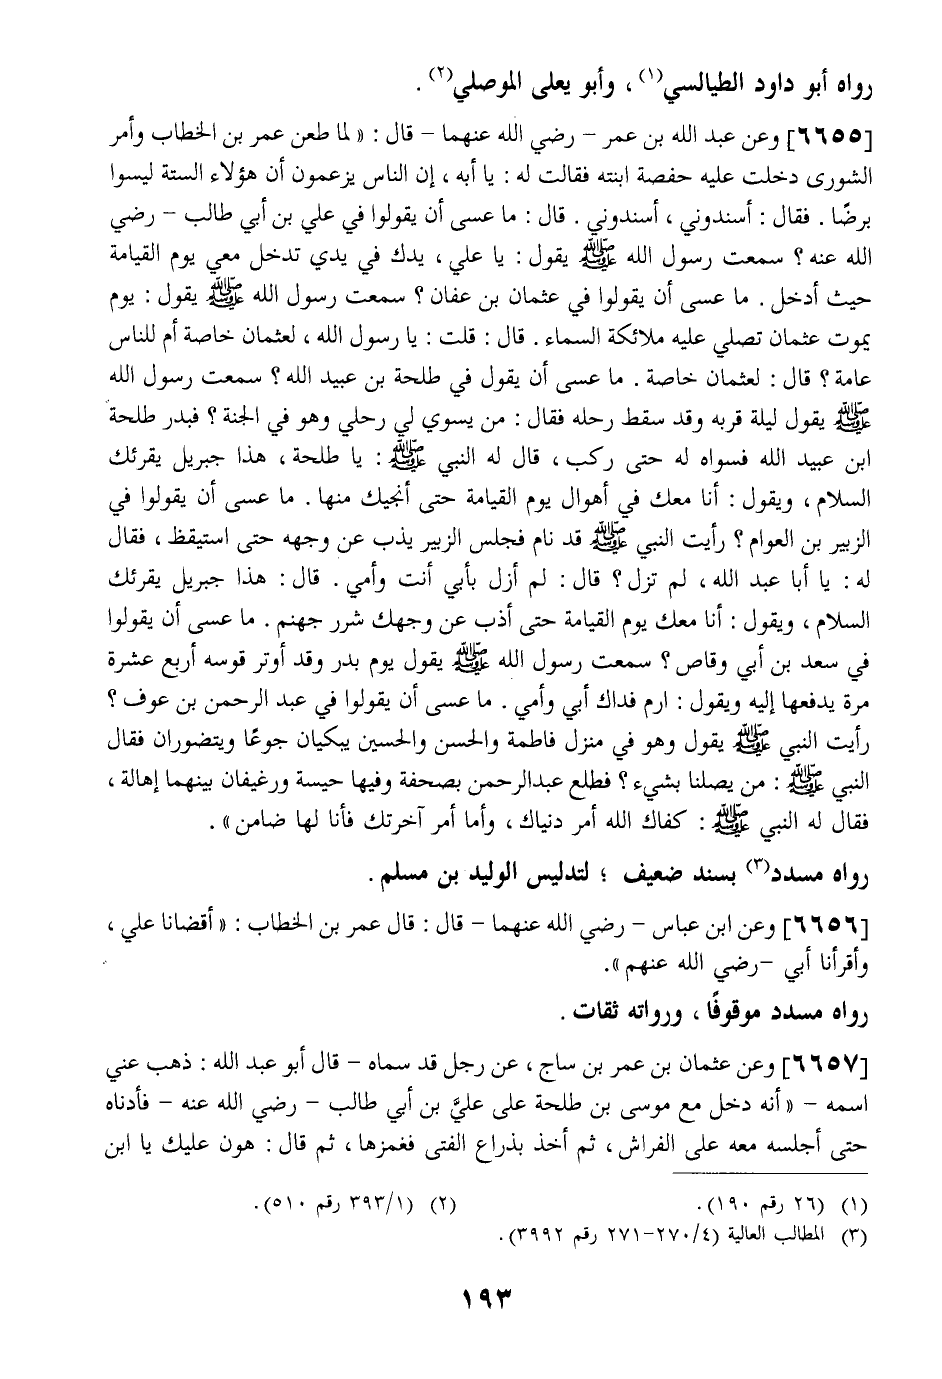 رواه أبو داود الطيالسي(١) ، وأبو يعلى الموصلي(٢) .
[٦٦٥٥] وعن عبد الله بن عمر – رضي الله عنهما – قال : « لما طعن عمر بن الخطاب وأمر
الشورى دخلت عليه حفصة ابنته فقالت له : يا أبه ، إن الناس يزعمون أن هؤلاء الستة ليسوا
برضًا . فقال : أسندوني ، أسندوني . قال : ما عسى أن يقولوا في علي بن أبي طالب – رضي
الله عنه ؟ سمعت رسول الله ﷺ يقول : يا علي ، يدك في يدي تدخل معي يوم القيامة
حيث أدخل . ما عسى أن يقولوا في عثمان بن عفان ؟ سمعت رسول الله ﷺ يقول : يوم
يموت عثمان تصلي عليه ملائكة السماء . قال : قلت : يا رسول الله ، لعثمان خاصة أم للناس
عامة ؟ قال : لعثمان خاصة . ما عسى أن يقول في طلحة بن عبيد الله ؟ سمعت رسول الله
ﷺ يقول ليلة قربه وقد سقط رحله فقال : من يسوي لي رحلي وهو في الجنة ؟ فبدر طلحة
ابن عبيد الله فسواه له حتى ركب ، قال له النبي ﷺ : يا طلحة ، هذا جبريل يقرئك
السلام ، ويقول : أنا معك في أهوال يوم القيامة حتى أنجيك منها . ما عسى أن يقولوا في
الزبير بن العوام ؟ رأيت النبي ﷺ قد نام فجلس الزبير يذب عن وجهه حتى استيقظ ، فقال
له : يا أبا عبد الله ، لم تزل ؟ قال : لم أزل بأبي أنت وأمي . قال : هذا جبريل يقرئك
السلام ، ويقول : أنا معك يوم القيامة حتى أذب عن وجهك شرر جهنم . ما عسى أن يقولوا
في سعد بن أبي وقاص ؟ سمعت رسول الله ﷺ يقول يوم بدر وقد أوتر قوسه أربع عشرة
مرة يدفعها إليه ويقول : ارم فداك أبي وأمي . ما عسى أن يقولوا في عبد الرحمن بن عوف ؟
رأيت النبي ﷺ يقول وهو في منزل فاطمة والحسن والحسين يبكيان جوعًا ويتضوران فقال
النبي ﷺ : من يصلنا بشيء ؟ فطلع عبدالرحمن بصحفة وفيها حيسة ورغيفان بينهما إهالة ،
فقال له النبي ﷺ : كفاك الله أمر دنياك ، وأما أمر آخرتك فأنا لها ضامن » .
رواه مسدد(٣) بسند ضعيف ؛ لتدليس الوليد بن مسلم .
[٦٦٥٦] وعن ابن عباس – رضي الله عنهما – قال : قال عمر بن الخطاب : « أقضانا علي ،
وأقرأنا أبي –رضي الله عنهم ».
رواه مسدد موقوفًا ، ورواته ثقات .
[٦٦٥٧] وعن عثمان بن عمر بن ساج ، عن رجل قد سماه – قال أبو عبد الله : ذهب عني
اسمه – « أنه دخل مع موسى بن طلحة على عليّ بن أبي طالب – رضي الله عنه – فأدناه
حتى أجلسه معه على الفراش ، ثم أخذ بذراع الفتى فغمزها ، ثم قال : هون عليك يا ابن
(١) (٢٦ رقم ١٩٠). (٢) (٣٩٣/١ رقم ٥١٠).
(٣) المطالب العالية (٢٧٠/٤-٢٧١ رقم ٣٩٩٢).
١٩٣